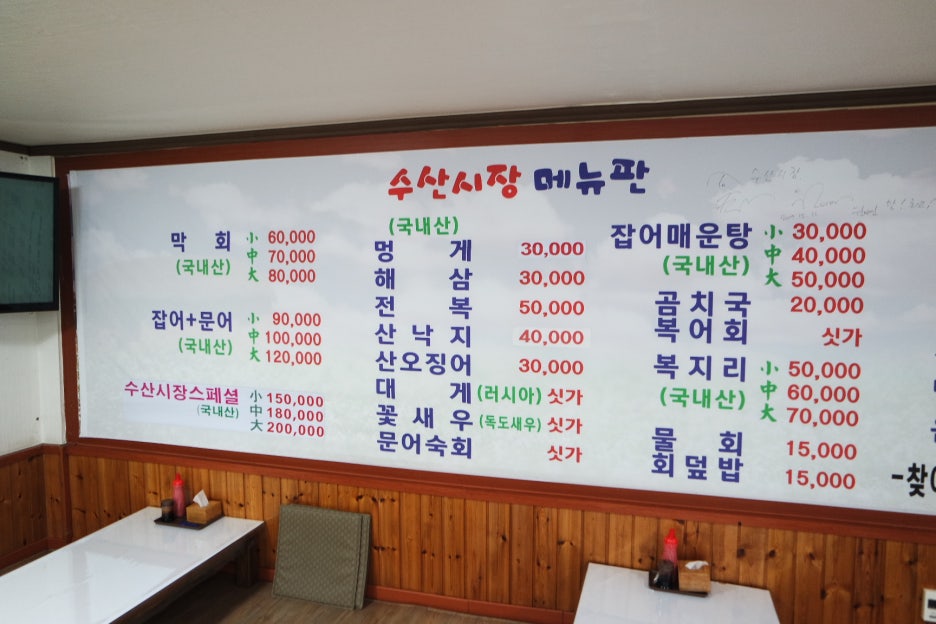 수산시장 메뉴판
막 회 小 60,000
(국내산) 中 70,000
大 80,000
잡어+문어 小 90,000
(국내산) 中 100,000
大 120,000
수산시장스페셜 小 150,000
(국내산) 中 180,000
大 200,000
(국내산)
멍 게 30,000
해 삼 30,000
전 복 50,000
산 낙 지 40,000
산오징어 30,000
대 게 (러시아) 싯가
꽃 새 우 (독도새우) 싯가
문어숙회 싯가
수산시장
잡어매운탕 小 30,000
(국내산) 中 40,000
大 50,000
곰 치 국 20,000
복 어 회 싯가
복 지 리 小 50,000
(국내산) 中 60,000
大 70,000
물 회 15,000
회 덮 밥 15,000